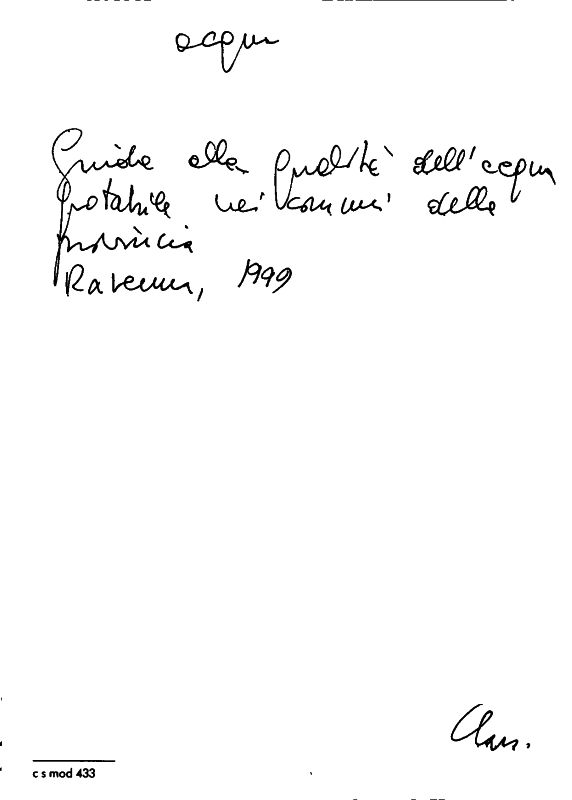 acqua
Guida alla qualità dell'acqua
potabile nei comuni delle
provincia
Ravenna, 1999
Clas.
c s mod 433